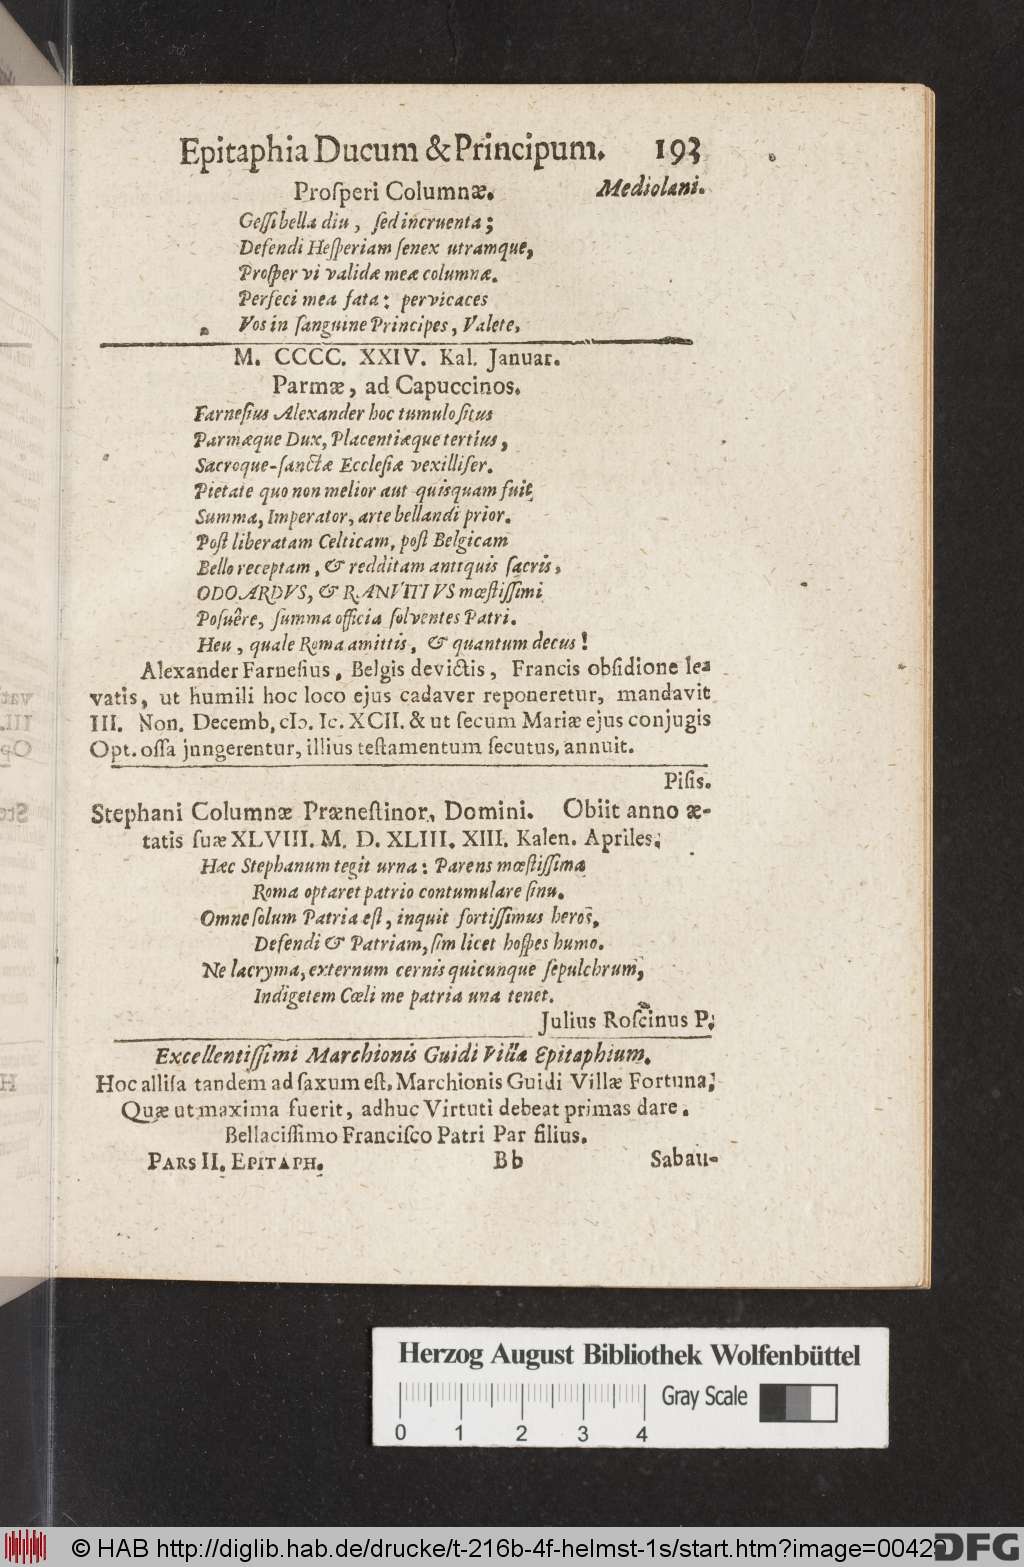 Epitaphia Ducum & Principum. 193
Proſperi Columnæ. Mediolani.
Geſſi bella diu, ſed incruenta;
Defendi Heſperiam ſenex utramque,
Proſper vi validæ meæ columnæ.
Perfeci mea fata: pervicaces
Vos in ſanguine Principes, Valete.
M. CCCC. XXIV. Kal. Januar.
Parmæ, ad Capuccinos.
Farneſius Alexander hoc tumulo ſitus
Parmæque Dux, Placentiæque tertius,
Sacroque-ſanctæ Eccleſiæ vexillifer.
Pietate quo non melior aut quisquam fuit
Summa, Imperator, arte bellandi prior.
Poſt liberatam Celticam, poſt Belgicam
Bello receptam, & redditam antiquis ſacris,
ODOARDVS, & RANVITIVS mœſtiſſimi
Poſuêre, ſumma officia ſolventes Patri.
Heu, quale Roma amittis, & quantum decus!
Alexander Farneſius, Belgis devictis, Francis obſidione le-
vatis, ut humili hoc loco ejus cadaver reponeretur, mandavit
III. Non. Decemb, cIↄ. Ic. XCII. & ut ſecum Mariæ ejus conjugis
Opt. oſſa jungerentur, illius teſtamentum ſecutus, annuit.
Piſis.
Stephani Columnæ Præneſtinor. Domini. Obiit anno æ-
tatis ſuæ XLVIII. M. D. XLIII. XIII. Kalen. Apriles.
Hæc Stephanum tegit urna: Parens mœſtiſſima
Roma optaret patrio contumulare ſinu.
Omne ſolum Patria eſt, inquit fortiſſimus heros,
Defendi & Patriam, ſim licet hoſpes humo.
Ne lacryma, externum cernis quicunque ſepulchrum,
Indigetem Cœli me patria una tenet.
Julius Roſcinus P.
Excellentiſſimi Marchionis Guidi Villa Epitaphium.
Hoc alliſa tandem ad ſaxum eſt, Marchionis Guidi Villæ Fortuna,
Quæ ut maxima fuerit, adhuc Virtuti debeat primas dare.
Bellaciſſimo Franciſco Patri Par filius.
PARS II. EPITAPH. Bb Sabau-
Herzog August Bibliothek Wolfenbüttel
Gray Scale
0 1 2 3 4
© HAB http://diglib.hab.de/drucke/t-216b-4f-helmst-1s/start.htm?image=00429
DFG